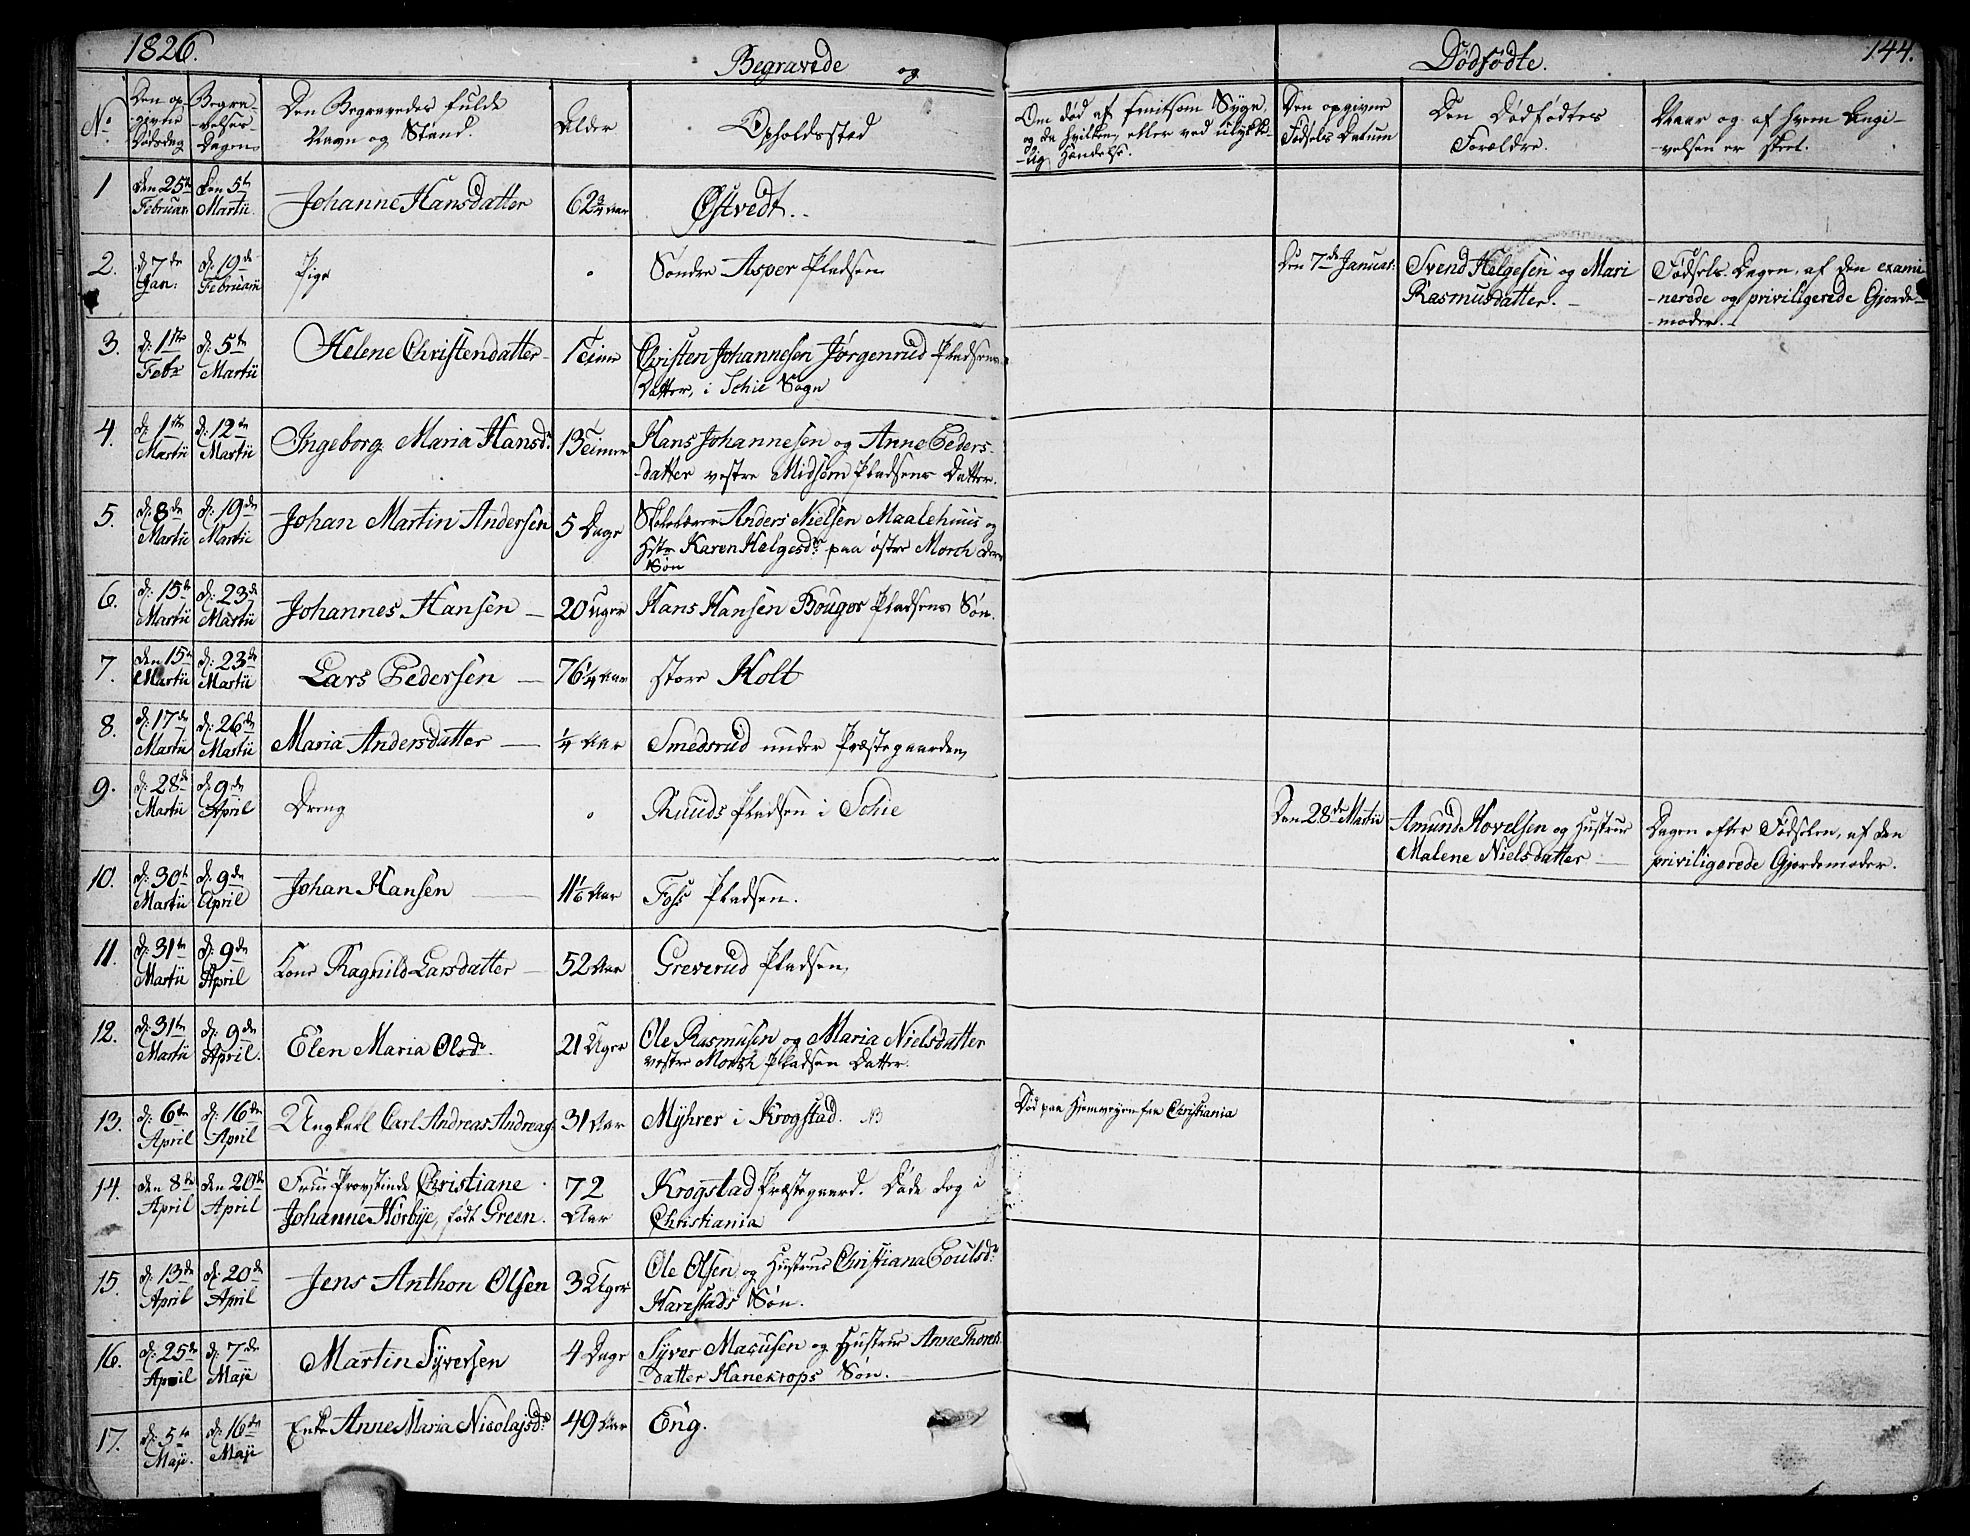 1826.
Begravede og Dødfødte.
144.
No
Den op-
givne
Dødsdag
Begra-
-velses-
Dagen
Den Begravedes fulde
Navn og Stand.
Alder
Opholdsstad
Om død af smitsom Syge,
og da hvilken, eller ved ulykke-
-lig Hændelse.
Den opgivne
Fødsels Datum
Den Dødfødtes
Forældre.
Naar og af hvem Angi-
-velsen er skeet.
1
Den 25de
Februar
Den 5te
Martii.
Johanne Hansdatter
62 Aar
Østvedt.
2.
d: 7de
Jan:
d: 19de
Februarii
Pige
Søndre Asper Pladsen
Den 7de Januar:
Svend Helgesen og Mari
Rasmusdatter.
Fødsels-Dagen, af den exami
-nerede og priviligerede Gjorde-
-moder.
3.
d: 1ste
Febr
d: 5te
Martii
Helene Christendatter
1 Time
Christen Johannesen Jørgenrud Pladsens
Datter, i Schie Sogn
4.
d: 1ste
Martii
d: 12te
Martii
Ingeborg Maria Hansdr.
13 Timer
Hans Johannesen og Anne Peders-
-datter vestre Midsem Pladsens Datter.
5.
d: 8de
Martii
d: 19de
Martii
Johan Martin Andersen
5 Dage
Skolelærer Anders Nielsen Maalehuus og
Hstr Karen Helgesdr. paa østre Morch deres
Søn
6.
d: 15de
Martii
d: 23de
Martii
Johannes Hansen
20 Uger
Hans Hansen Bouger Pladsens Søn.
7.
den 15de
Martii
d: 23de
Martii
Lars Pedersen
76 1/4 Aar
store Holt
8.
d: 17de
Martii
d: 26de
Martii
Maria Andersdatter
1/4 Aar
Smedsrud under Præstegaarden
9.
d: 28de
Martii
d: 9de
April
Dreng
Ruuds Pladsen i Schie
Den 28de Martii
Amund Hovelsen og Hustrue
Malene Nielsdatter
Dagen efter Fødselen, af den
priviligerede Gjordemoder.
10.
d: 30te
Martii
d: 9de
April
Johan Hansen
11 1/6 Aar
Foss Pladsen.
11.
d: 31te
Martii
d: 9de
April
Kone Ragnild Larsdatter
52 Aar
Greverud Pladsen
12.
d: 31te
Martii
d: 9de
April.
Elen Maria Olsdr.
21 Uger
Ole Rasmusen og Maria Nielsdatter
vestre Morch Pladsen Datter.
13.
d: 6te
April
d: 16de
April
Ungkarl Carl Andreas Andreas
31 Aar
Myhrer i Krogstad. NB
Død paa Hiemveyen fra Christiania
14.
den 8de
April
den 20de
April
Frue Provstinde Christiane
Johanne Hørbye, født Green.
72
Aar
Krogstad Præstegaard. Døde dog i
Christiania
15.
d: 13de
April
d: 20de
April
Jens Anthon Olsen
3 Uger
Ole Olsen og Hustrue Christiana Poulsdr.
Harestads Søn.
16.
d: 25de
April
d: 7de
Maji
Martin Syversen
4 Dage
Syver Macusen og Hustrue Anne Thores
-datter Hanekrops Søn.
17.
d: 5te
Maji.
d: 16de
Maji
Enke Anne Maria Nicolajsdr.
49 Aar
Eng.